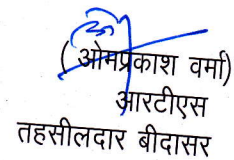 ( ओमप्रकाश वर्मा)
आरटीएस
तहसीलदार बीदासर